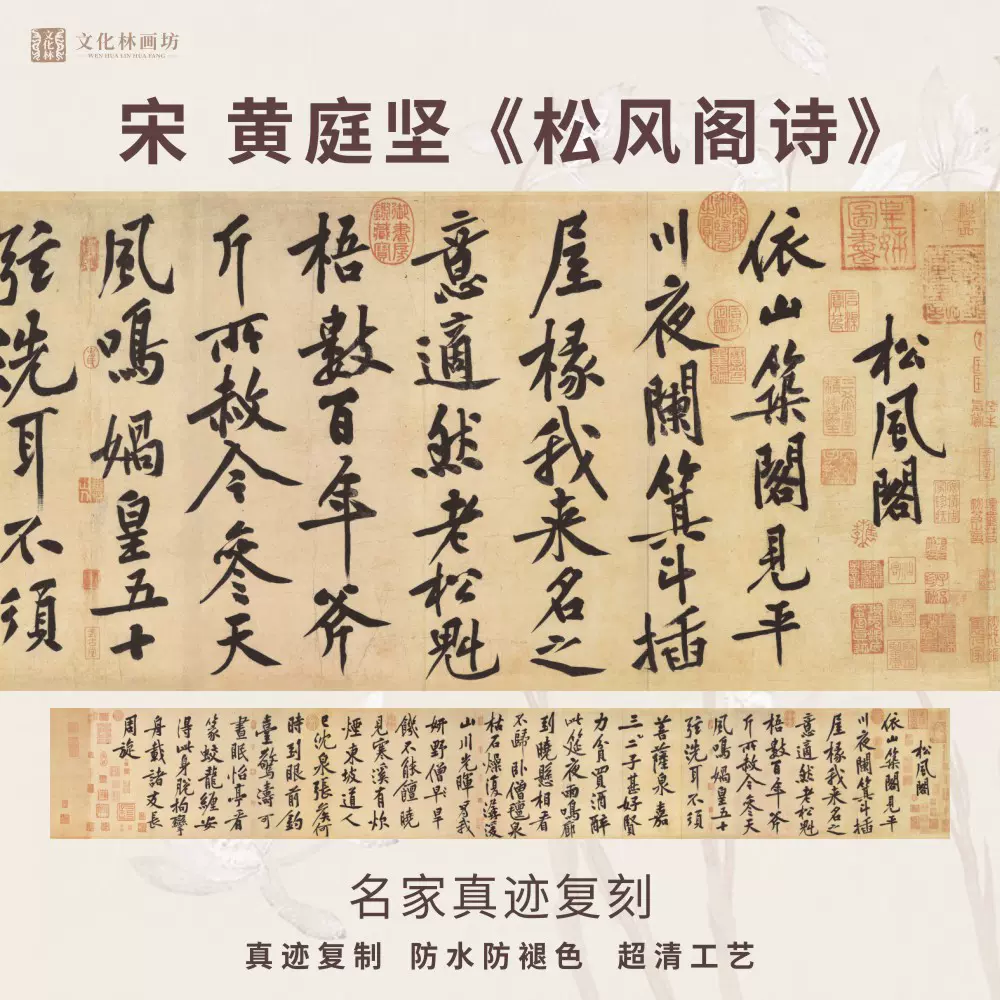 文化林
文化林画坊
WEN HUA LIN HUA FANG
宋 黄庭坚《松风阁诗》
松風閣
依山築閣見平
川夜闌箕斗插
屋椽我来名之
意適然老松魁
梧數百年斧
斤所赦今參天
風鳴媧皇五十
弦洗耳不須
皇姊圖書
御書房鑑藏寶
松風閣
依山築閣見平
川夜闌箕斗插
屋椽我来名之
意適然老松魁
梧數百年斧
斤所赦今參天
風鳴媧皇五十
弦洗耳不須
菩薩泉嘉
三二子甚好賢
力貧買酒醉
此筵夜雨鳴廊
到曉懸相看
不歸卧僧氈泉
枯石燥復潺湲
山川光暉為我
妍野僧早旱
饑不能饘曉
見寒溪有炊
煙東坡道人
已沈泉張侯何
時到眼前釣
臺驚濤可
晝眠怡亭看
篆蛟龍纏安
得此身脫拘攣
舟載諸友長
周旋
名家真迹复刻
真迹复制 防水防褪色 超清工艺